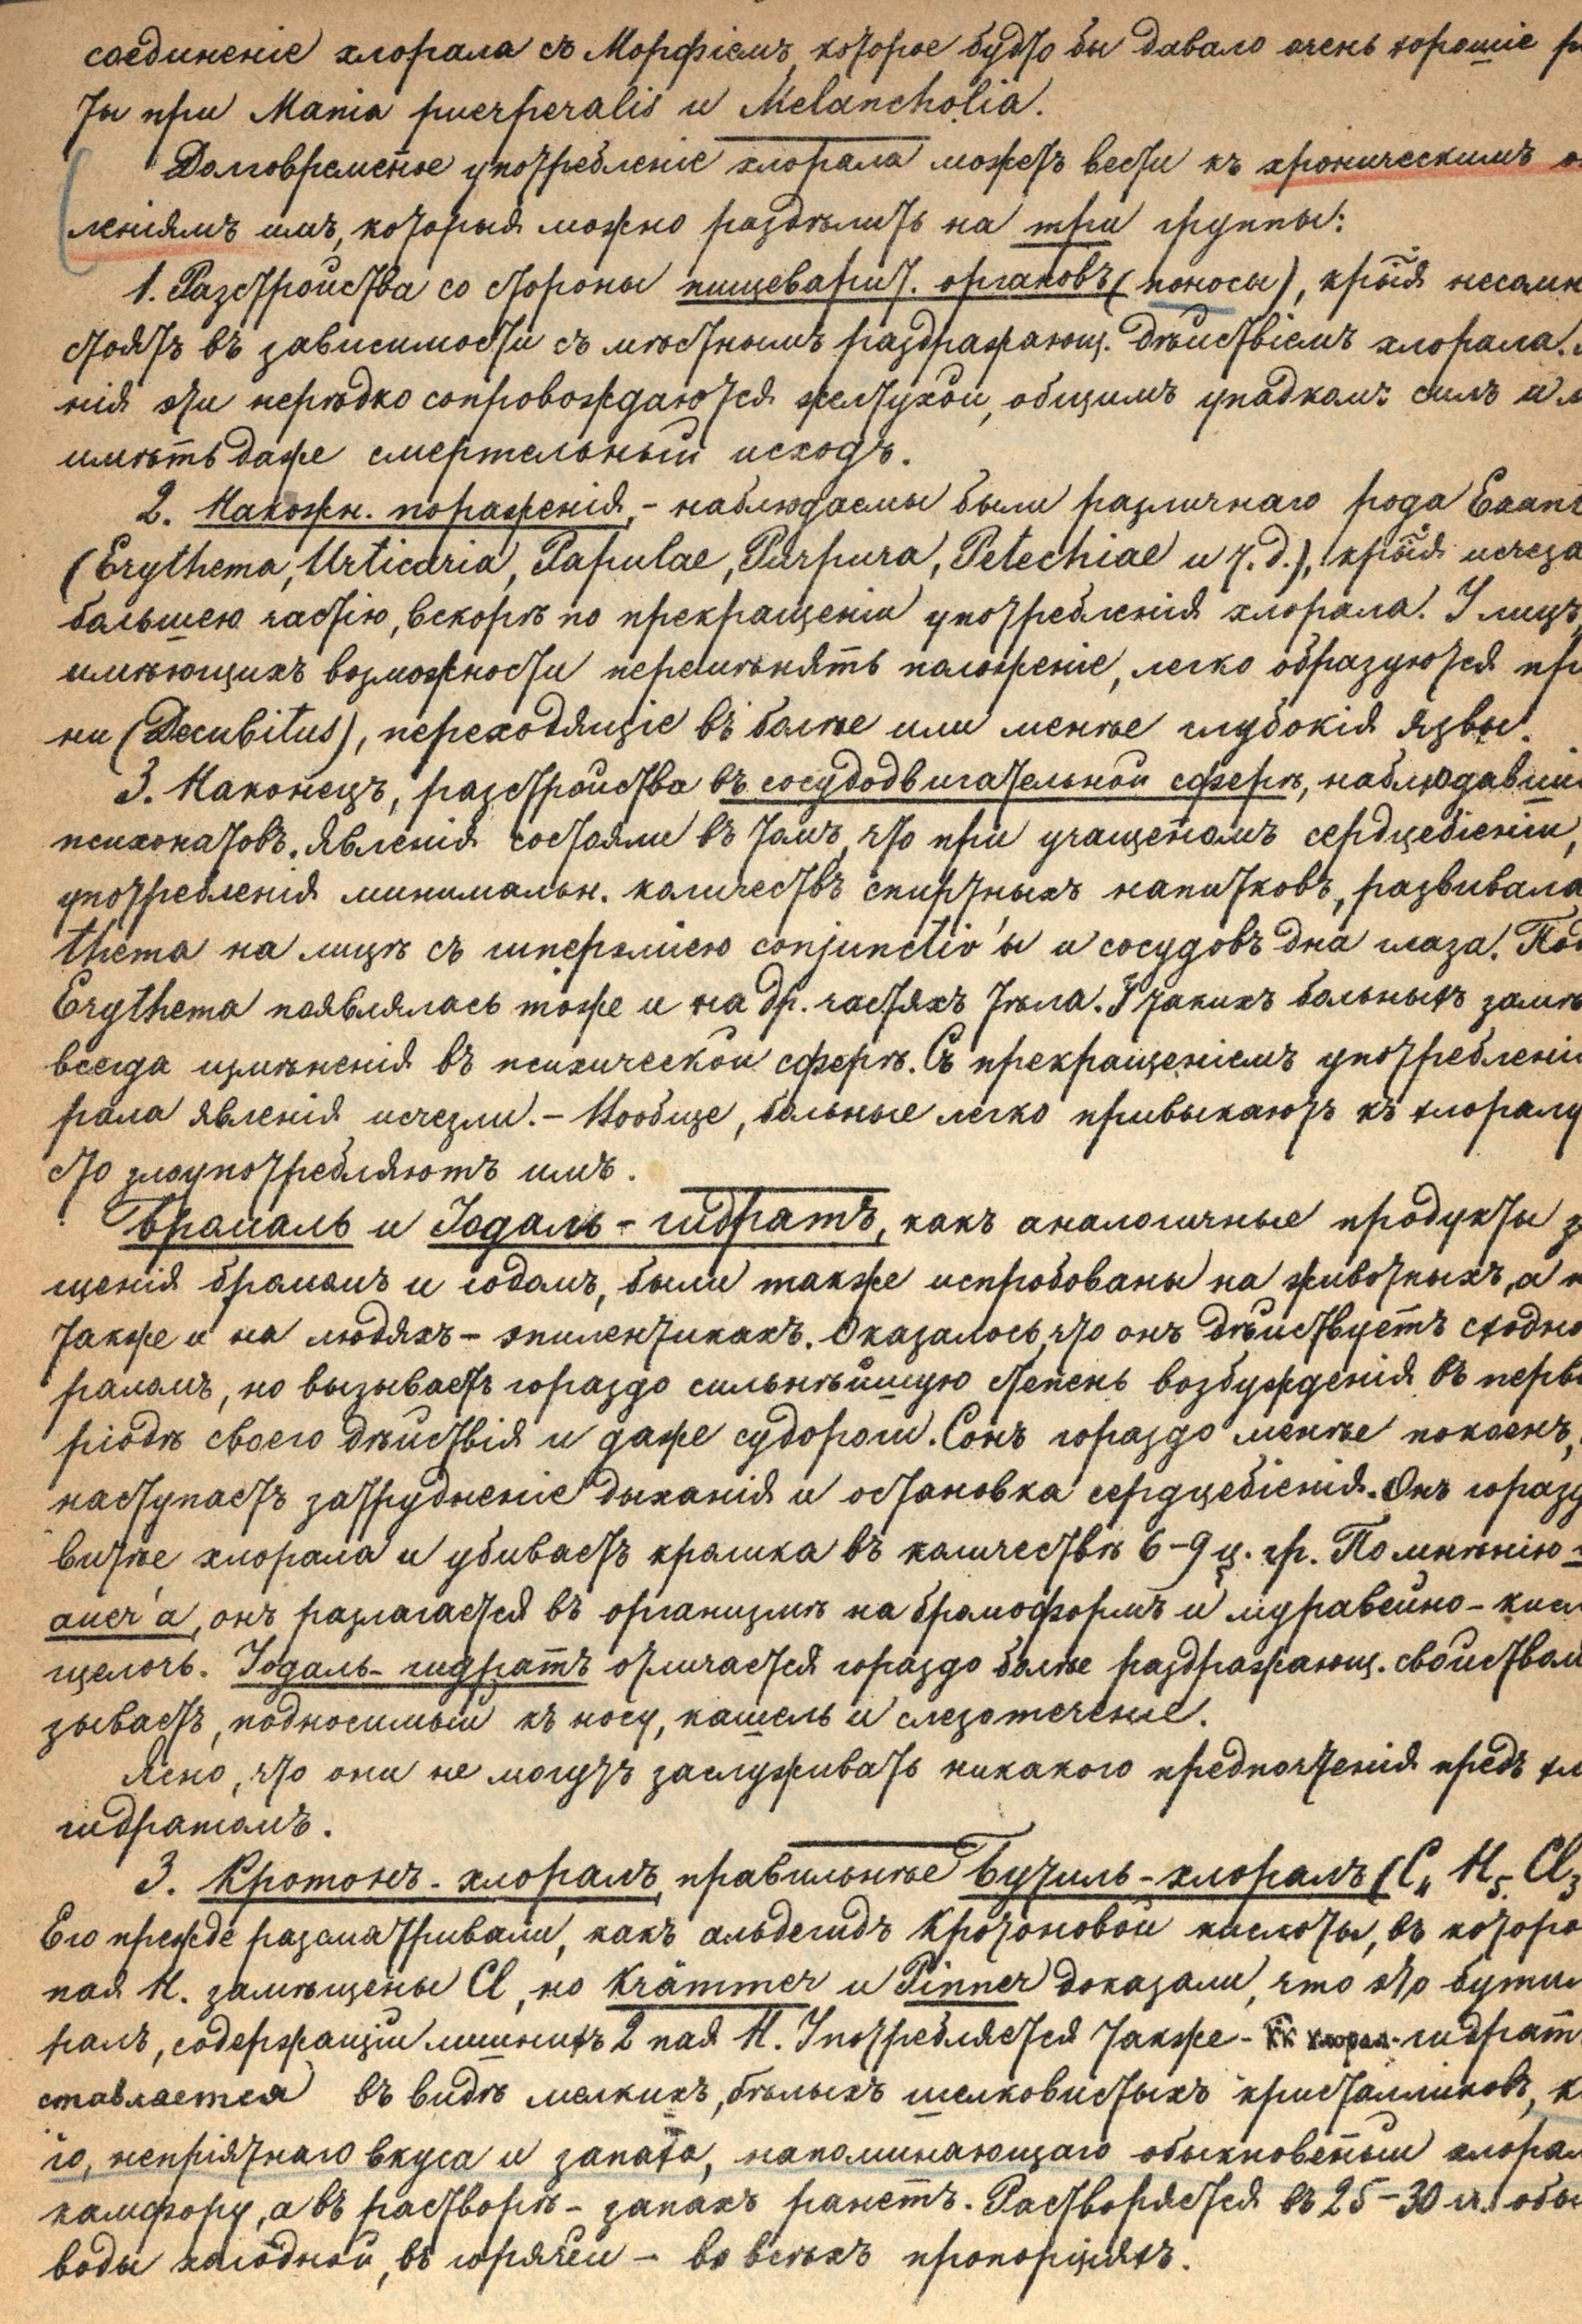 соединеніе хлорала съ Морфіемъ, которое будто бы давало очень хорошіе р
ты при Mania puerperalis и Melancholia.
Долговременное употребленіе хлорала можетъ вести къ хроническимъ о
леніямъ имъ, которыя можно раздѣлить на три группы:
1. Разстройства со стороны пищеварит. органовъ (поносы), крыя несомн
стоятъ въ зависимости съ мѣстнымъ раздражающ. дѣйствіемъ хлорала.
нія эти нерѣдко сопровождаются желтухой, общимъ упадкомъ силъ и м
имѣть даже смертельный исходъ.
2. Накожн. пораженія, - наблюдаемы были различнаго рода Exant
(Erythema, Urticaria, Papulae, Purpura, Petechiae и т.д.), крыя исчеза
большею частію, вскорѣ по прекращеніи употребленія хлорала. У лицъ,
имѣющихъ возможности перемѣнять положеніе, легко образуются пр
ни (Decubitus), переходящіе въ болѣе или менѣе глубокія язвы.
3. Наконецъ, разстройства въ сосудодвигательной сферѣ, наблюдавші
психопатовъ. Явленія состояли въ томъ, что при учащеномъ сердцебіеніи,
употребленія минимальн. количествъ спиртныхъ напитковъ, развивала
thema на лицѣ съ гиперэміею conjunctiv'ы и сосудовъ дна глаза. Под
Erythema появлялась тоже и на др. частяхъ тѣла. У такихъ больныхъ замѣ
всегда измѣненія въ психической сферѣ. Съ прекращеніемъ употребленія
рала явленія исчезли. - Вообще, больные легко привыкаютъ къ хлоралу
сто злоупотребляютъ имъ.
Бромаль и Іодаль - гидратъ, какъ аналогичные продукты з
щенія бромомъ и іодомъ, были также испробованы на животныхъ, а п
также и на людяхъ - эпилептикахъ. Оказалось, что онъ дѣйствуетъ сходно
раломъ, но вызываетъ гораздо сильнѣйшую степень возбужденія въ перво
ріодѣ своего дѣйствія и даже судороги. Сонъ гораздо менѣе покоенъ,
наступаетъ затрудненіе дыханія и остановка сердцебіенія. Онъ горазд
витѣе хлорала и убиваетъ кролика въ количествѣ 6-9 ц. гр. По мнѣнію
auer'а, онъ разлагается въ организмѣ на бромоформъ и муравейно-кисл
щелочь. Іодаль-гидратъ отличается гораздо болѣе раздражающ. свойствам
зываетъ, подносимый къ носу, кашель и слезотеченіе.
Ясно, что они не могутъ заслуживать никакого предпочтенія предъ хл
гидратомъ.
3. Кротонъ-хлоралъ, правильнѣе Бутиль-хлоралъ (C₄ H₅ Cl₃
Его прежде разсматривали, какъ альдегидъ Кротоновой кислоты, въ которо
пая H. замѣщены Cl, но Krämmer и Pinner доказали, что это бутил
ралъ, содержащій лишнихъ 2 пая H. Употребляется также - гидрат
ставляется въ видѣ мелкихъ, бѣлыхъ шелковистыхъ кристалликовъ, к
го, непріятнаго вкуса и запаха, напоминающаго обыкновенный хлорал
камфору, а въ растворѣ - запахъ ранетъ. Растворяется въ 25-30 ч. обы
воды холодной, въ горячей - во всѣхъ пропорціяхъ.